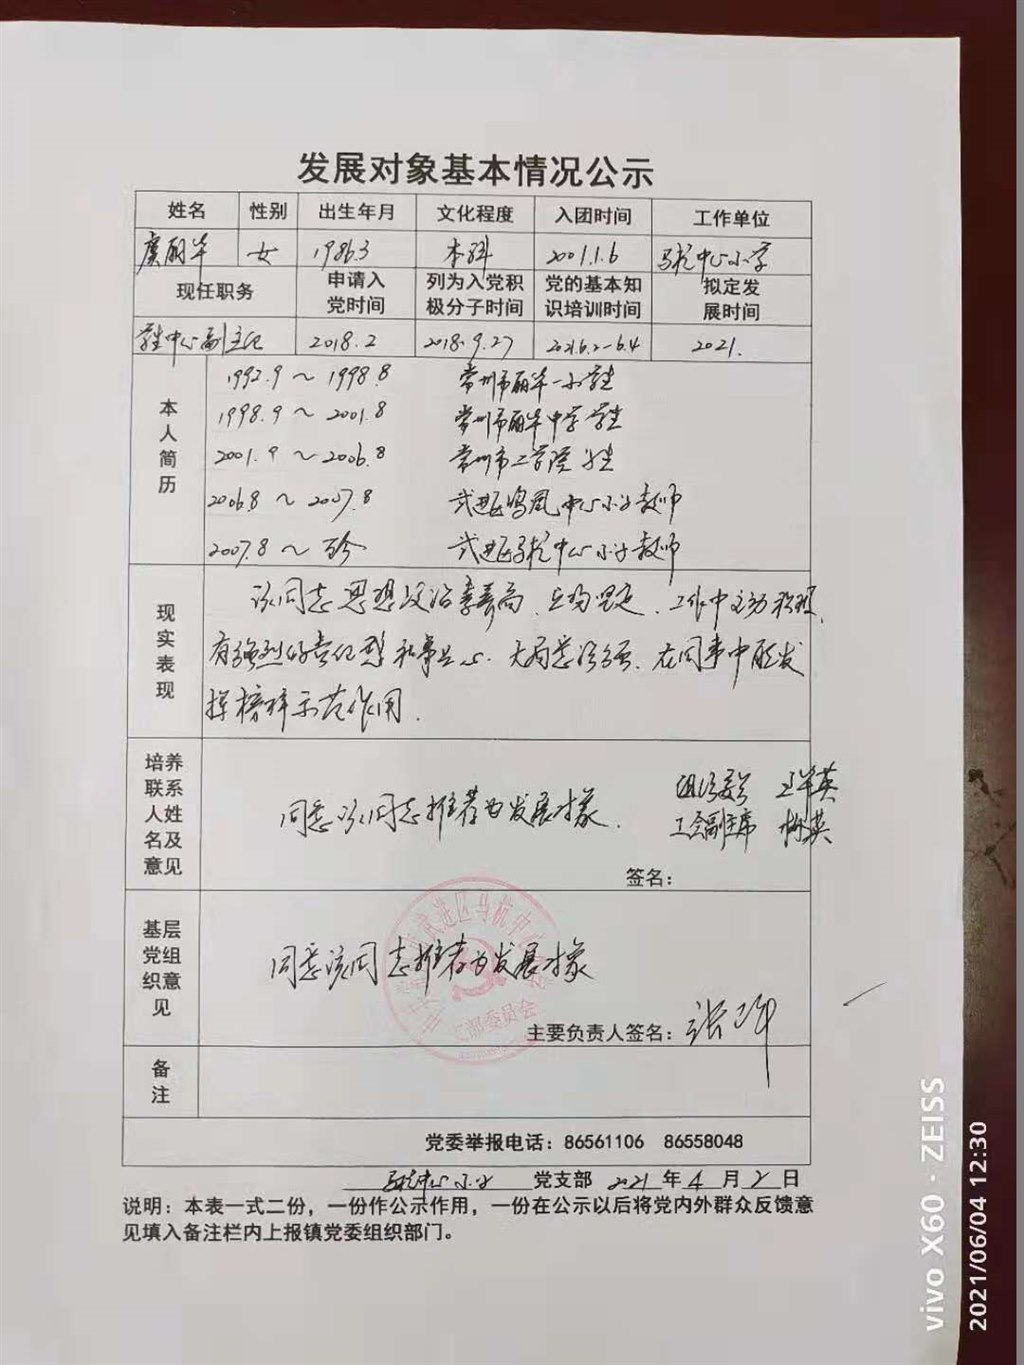 发展对象基本情况公示
姓名 性别 出生年月 文化程度 入团时间 工作单位
虞丽华 女 1986.3 本科 2001.1.6 马杭中心小学
现任职务 申请入党时间 列为入党积极分子时间 党的基本知识培训时间 拟定发展时间
学生中心副主任 2018.2 2018.9.27 2021.6.2-6.4 2021.
本人简历
1992.9~1998.8 常州市丽华一小学生
1998.9~2001.8 常州市丽华中学 学生
2001.9~2006.8 常州市工学院 学生
2006.8~2007.8 武进区鸣凰中心小学教师
2007.8~至今 武进区马杭中心小学教师
现实表现
该同志思想政治素养高,立场坚定,工作中主动积极,
有强烈的责任感和事业心,大局意识强,在同事中能发
挥榜样示范作用.
培养联系人姓名及意见
同意该同志推荐为发展对象.
组织委员 王苹英
工会副主席
签名:
基层党组织意见
同意该同志推荐为发展对象
武进区马杭中心
支部委员会
主要负责人签名:
备注
党委举报电话:86561106 86558048
马杭中心小学 党支部 2021 年 4 月 2 日
说明:本表一式二份,一份作公示作用,一份在公示以后将党内外群众反馈意
见填入备注栏内上报镇党委组织部门。
vivo X60 · ZEISS
2021/06/04 12:30